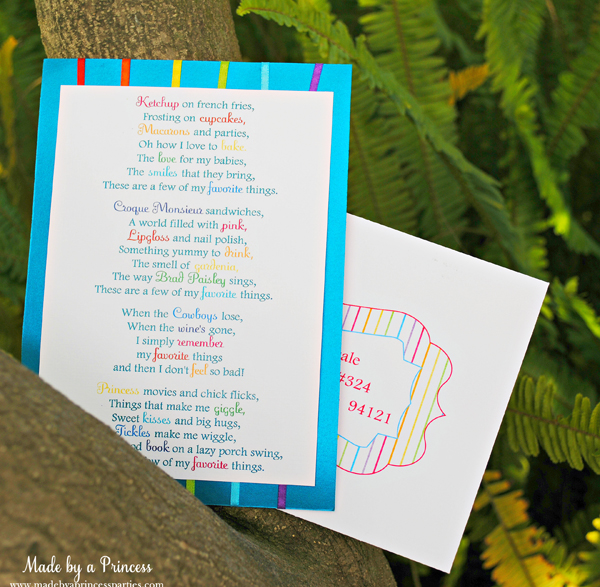 Ketchup on french fries,
Frosting on cupcakes,
Macarons and parties,
Oh how I love to bake.
The love for my babies,
The smiles that they bring,
These are a few of my favorite things.
Croque Monsieur sandwiches,
A world filled with pink,
Lipgloss and nail polish,
Something yummy to drink,
The smell of gardenia,
The way Brad Paisley sings,
These are a few of my favorite things.
When the Cowboys lose,
When the wine's gone,
I simply remember
my favorite things
and then I don't feel so bad!
Princess movies and chick flicks,
Things that make me giggle,
Sweet kisses and big hugs,
Tickles make me wiggle,
book on a lazy porch swing,
few of my favorite things.
#324
94121
Made by a Princess
www.madebyaprincessparties.com